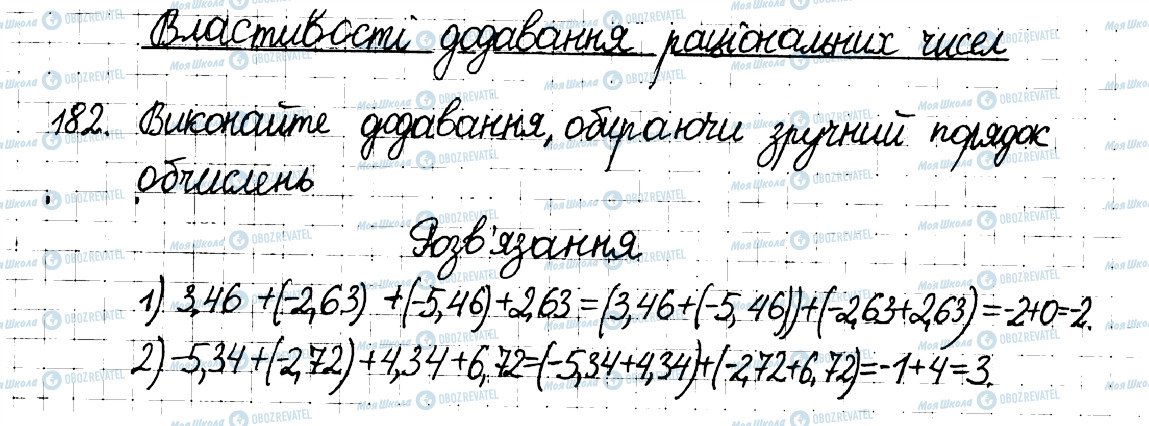 Властивості додавання раціональних чисел
182. Виконайте додавання, обираючи зручний порядок
обчислень
Розв'язання
1) 3,46 + (-2,63) + (-5,46) + 2,63 = (3,46 + (-5,46)) + (-2,63 + 2,63) = -2 + 0 = -2.
2) -5,34 + (-2,72) + 4,34 + 6,72 = (-5,34 + 4,34) + (-2,72 + 6,72) = -1 + 4 = 3.